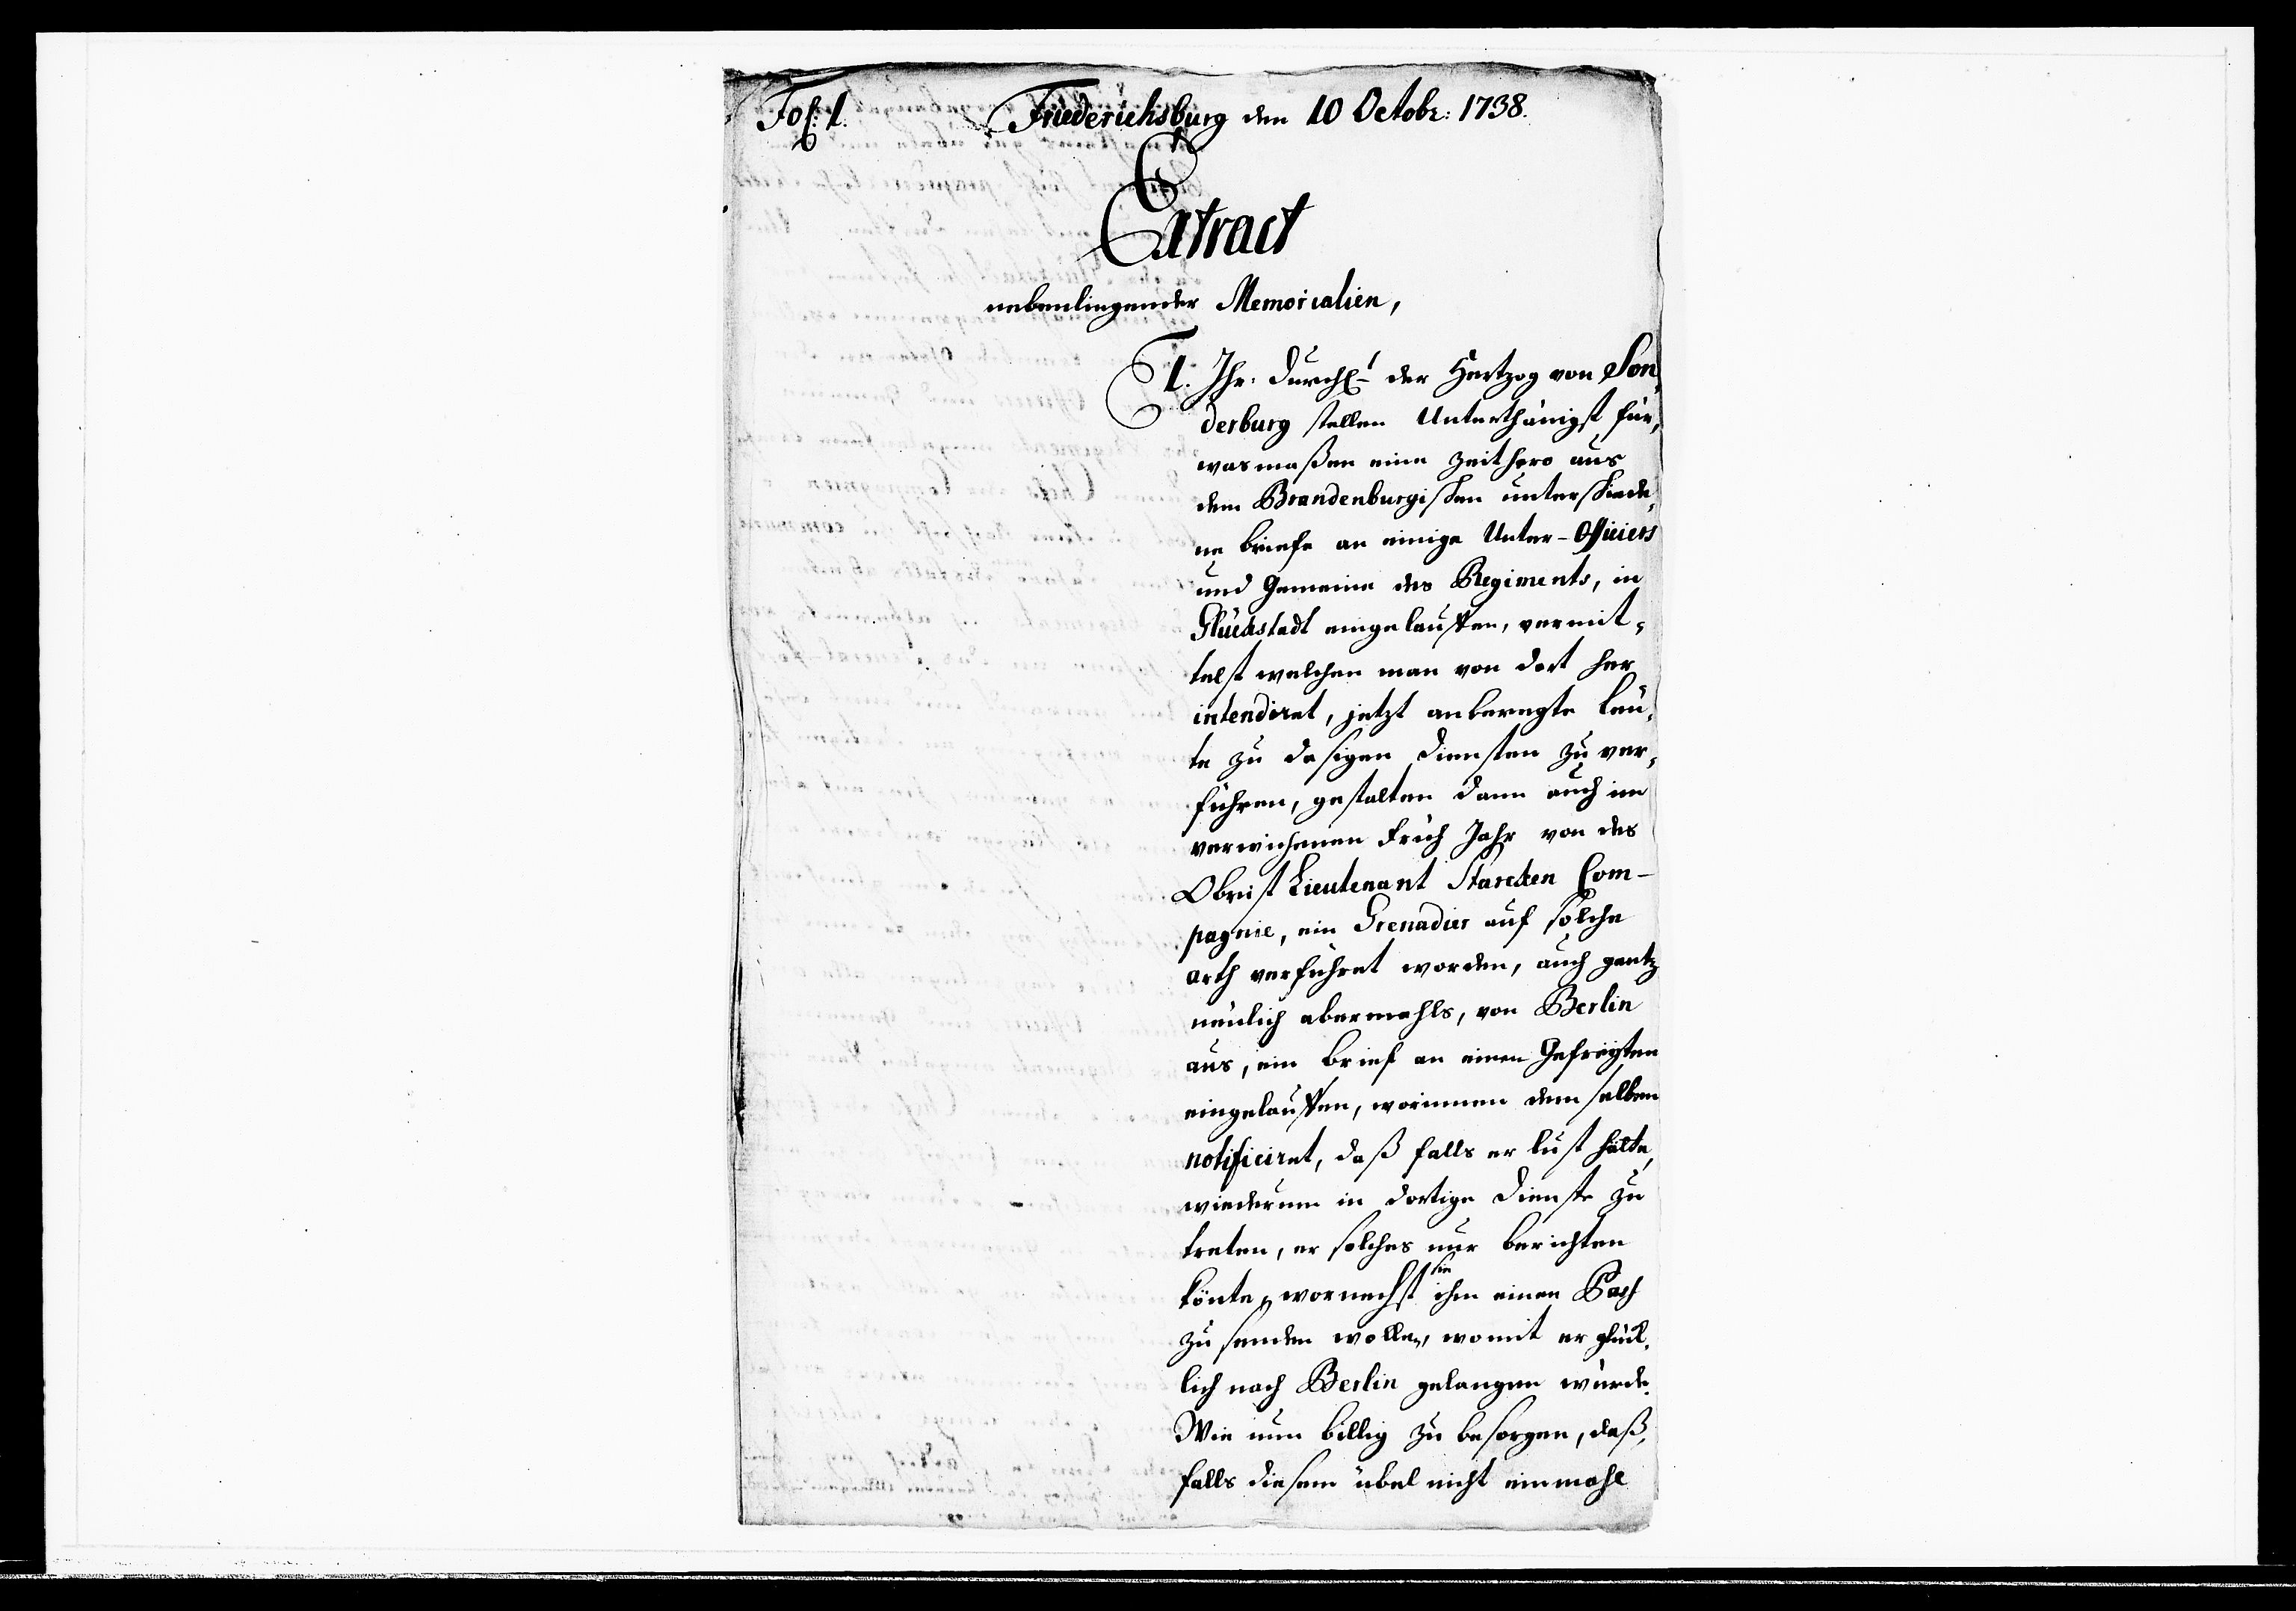 Fol: 1. Friederichsburg den 10 Octobr: 1738.
Extract
nebenliegender Memorialien,
1. Ihr: Durchl: der Hertzog von Son„
derburg stellen Unterthänigst für,
wasmaßen eine zeithero aus
dem Brandenburgischen unterschiede„
ne briefe an einige Unter-Officiers
und Gemeine des Regiments, in
Glückstadt eingelauffen, vermit„
telst welchen man von dort her
intendiret, jetzt anberegte leu„
te zu dasigen Diensten zu ver„
führen, gestalten dann auch im
verwichenen Früh Jahr von des
Obrist Lieutenant Starcken Com-
pagnie, ein Grenadier auf solche
arth verführet worden, auch gantz
neulich abermahls, von Berlin
aus, ein brief an einen Gefreyten
eingelauffen, worinnen dem selben
notificiret, daß falls er lust hätte,
wiederum in dortige Dienste zu
treten, er solches nur berichten
könte, wornechst sie ihm einen Paß
zu senden wollen, womit er glück„
lich nach Berlin gelangen würde.
Wie nun billig zu besorgen, daß,
falls diesem übel nicht einmahl